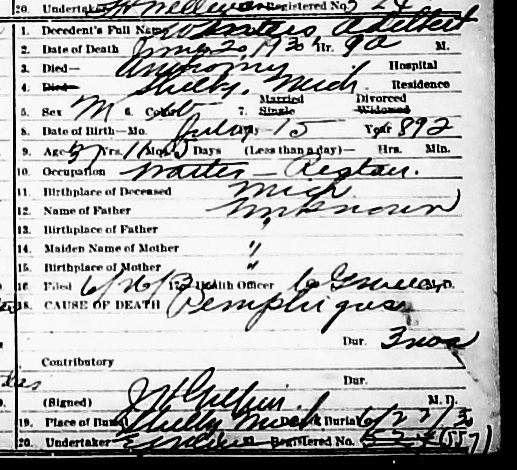 20. Undertaker Registered No. 524
1. Decedent's Full Name Winters Adelbert
2. Date of Death June 20, 1930 Hr. 9a M.
3. Died— Anthony Hospital
4. Died— Shelby, Mich. Residence
5. Sex M 6. Color W 7. Married Single Divorced Widowed
8. Date of Birth—Mo. July Day 15 Year 892
9. Age 37 Yrs. 11 Mos. 5 Days (Less than a day)— Hrs. Min.
10. Occupation Waiter — Restau.
11. Birthplace of Deceased Mich
12. Name of Father Unknown
13. Birthplace of Father "
14. Maiden Name of Mother "
15. Birthplace of Mother "
16. Filed 6/26/3 17. Health Officer
18. CAUSE OF DEATH Pemphigus
Dur. 3 mos
Contributory
Dur.
(Signed) M. D.
19. Place of Burial Shelby Mich. Date Burial 6/22/30
20. Undertaker Registered No. 524 (557)